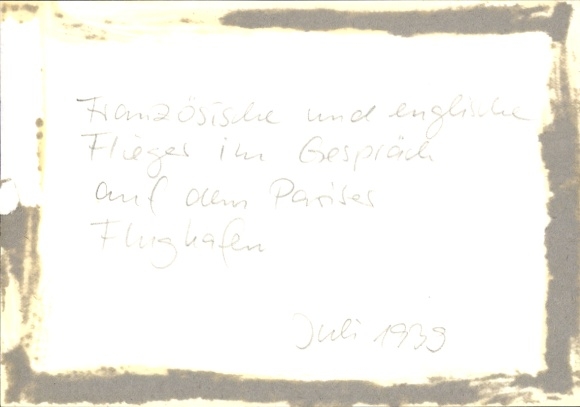 Französische und englische
Flieger im Gespräch
auf dem Pariser
Flughafen
Juli 1939